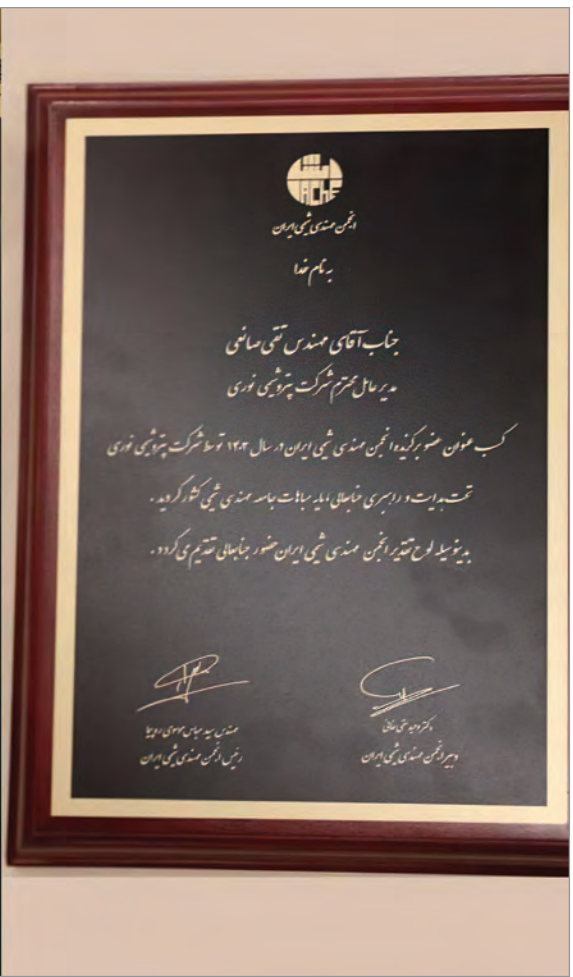 IAChE
انجمن مهندسی شیمی ایران
به نام خدا
جناب آقای مهندس تقی صانعی
مدیر عامل محترم شرکت پتروشیمی نوری
کسب عنوان عضو برگزیده انجمن مهندسی شیمی ایران در سال ۱۴۰۲ توسط شرکت پتروشیمی نوری
تحت هدایت و راهبری جنابعالی، مایه مباهات جامعه مهندسی شیمی کشور گردید.
بدینوسیله لوح تقدیر انجمن مهندسی شیمی ایران حضور جنابعالی تقدیم می گردد.
دکتر وحید تقی خانی
دبیر انجمن مهندسی شیمی ایران
مهندس سید عباس موسوی
رئیس انجمن مهندسی شیمی ایران